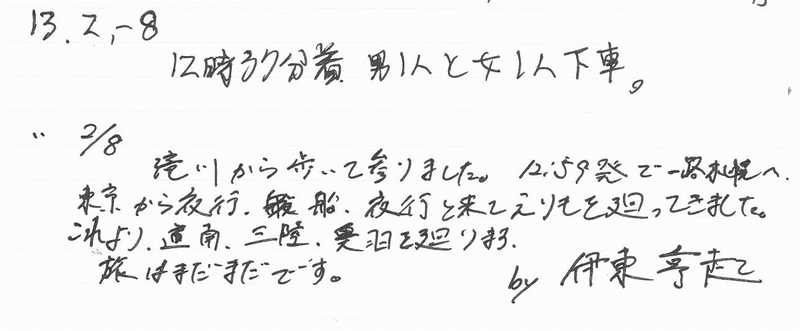 13.2.-8
12時37分着 男1人と女1人下車。
〃 2/8
滝川から歩いて参りました。12:59発で一路札幌へ、
東京から夜行、船、夜行と来てえりもを廻ってきました。
これより、道南、三陸、奥羽を廻ります。
旅はまだまだです。
by 伊東